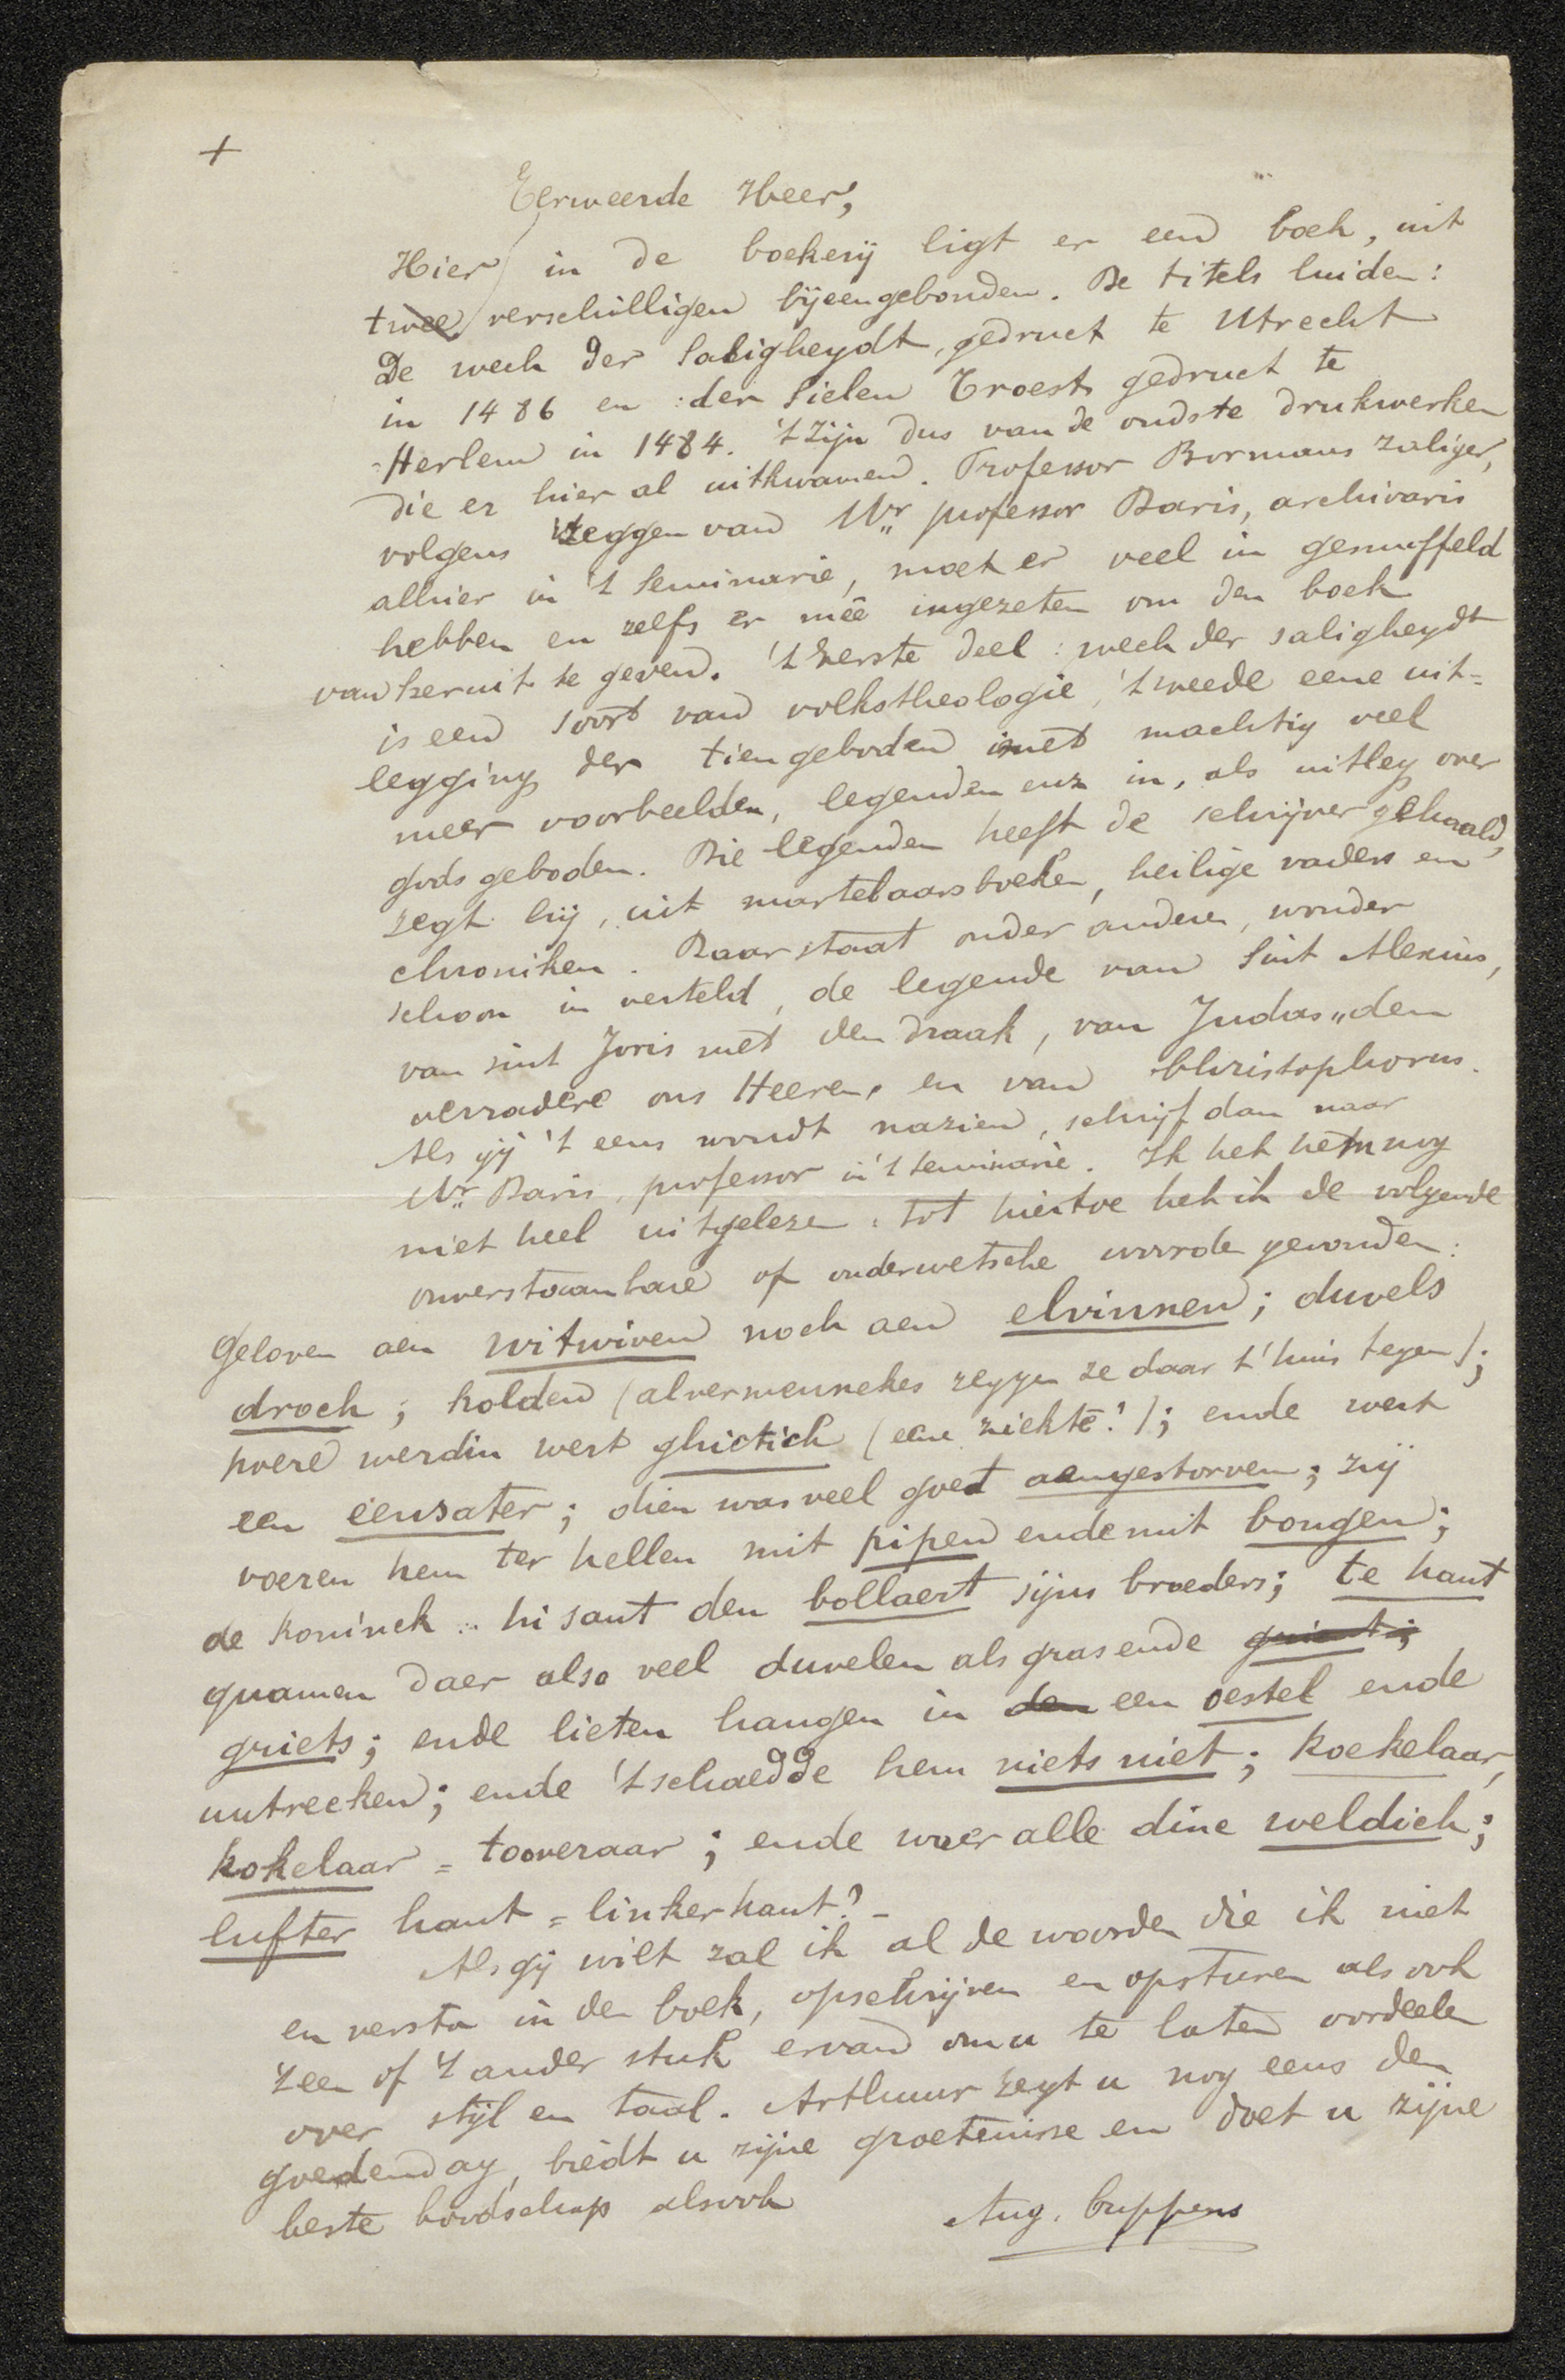 +
Eerweerde Heer,
Hier in de boekerij ligt er een boek, uit
twee verschilligen bijeengebonden. De titels luiden:
De wech der Saligheydt, gedruct te Utrecht
in 1486 en: der Sielen Troest gedruct te
Herlem in 1484. 't Zijn dus van de oudste drukwerken
die er hier al uitkwamen. Professor Bormans zaliger,
volgens zeggen van Mr professor Daris, archivaris
alhier in 't Seminarie, moet er veel in gesnuffeld
hebben en zelfs er meê ingezeten om den boek
van her uit te geven. 't Eerste deel: wech der saligheydt
is een soort van volkstheologie, 't tweede eene uit-
legging der tien geboden met machtig veel
meer voorbeelden, legenden enz in, als uitleg over
gods geboden. Die legenden heeft de schrijver gehaald,
zegt hij, uit martelaarsboeken, heilige vaders en
chroniken. Daar staat onder andere, wonder
schoon in verteld, de legende van Sint Alexius,
van sint Joris met den draak, van Judas „den
verradere ons Heeren, en van Christophorus.
Als gij 't eens woudt nazien, schrijf dan naar
Mr Daris, professor in 't seminarie. Ik heb hem nog
niet heel uitgelezen: tot hiertoe heb ik de volgende
onverstaanbare of ouderwetsche woorde gevonden:
Geloven aen witwiven noch aen elvinnen; duvels
droch; holden (alvermennekes zeggen ze daar t'huis tegen);
hoere werdin wert ghictich (eene ziekte?); ende wert
een eensater; dien was veel goet aengestorven; zij
voeren hem ter hellen mit pipen ende mit bongen;
de koninck .. hi sant den bollaert sijns broeders; te hant
quamen daer also veel duvelen als gras ende
griets; ende lieten hangen in den een oestel ende
uutrecken; ende 't schaedde hem niets niet; koekelaar,
kokelaar = tooveraar; ende waer alle dinc weldich;
lufter hant = linkerhant? –
Als gij wilt zal ik al de woorden die ik niet
en versta in den boek, opschrijven en opsturen als ook
't een of 't ander stuk ervan om u te laten oordeelen
over stijl en taal. Arthuur zegt u nog eens den
goedendag, biedt u zijne groetenisse en doet u zijne
beste boodschap alsook
Aug. Cuppens